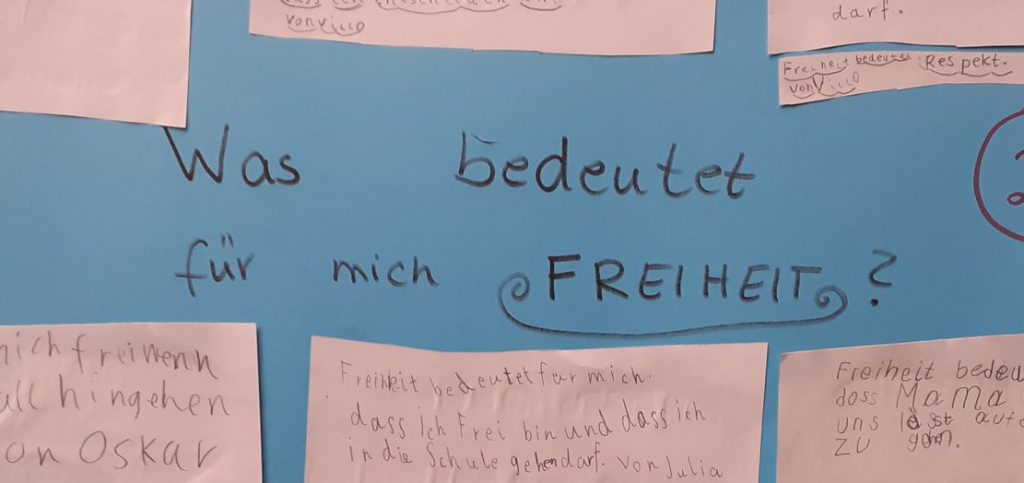 von Vicco
darf.
Freiheit bedeutet Respekt.
von Vicco
Was bedeutet
für mich FREIHEIT?
mich frei wenn
hingehen
von Oskar
Freiheit bedeutet für mich.
dass ich Frei bin und dass ich
in die Schule gehen darf. von Julia
Freiheit bedeu
dass Mama
uns lässt
zu gehen.